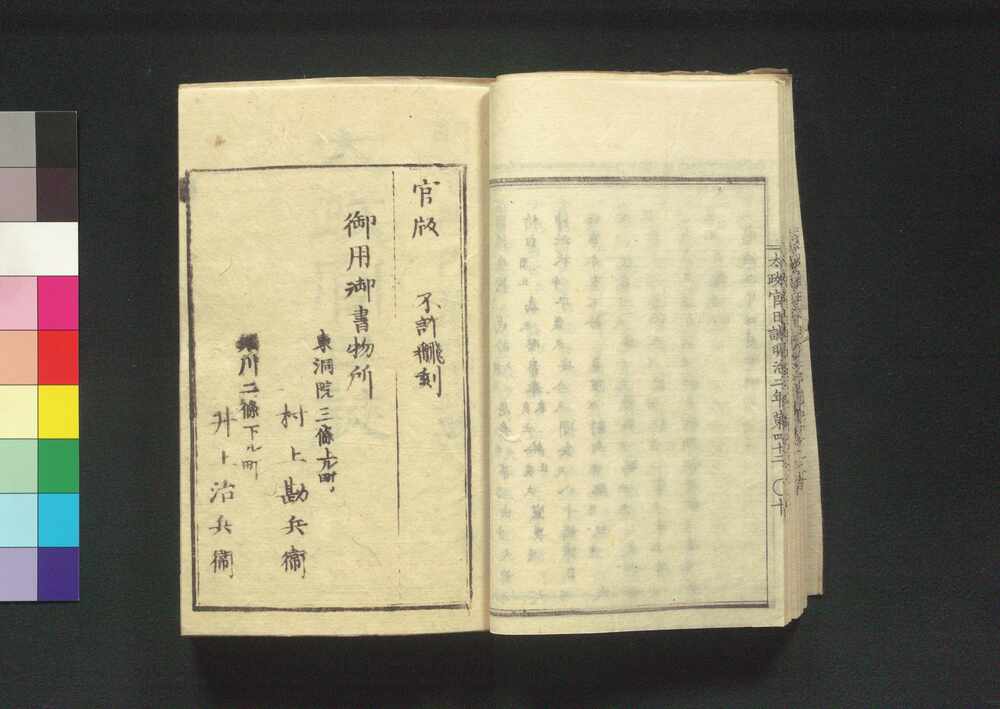 太政官日誌明治二年第四十二 〇十
官版 不許翻刻
御用御書物所
東洞院三條上ル町
村上勘兵衛
堀川二條下ル町
井上治兵衛